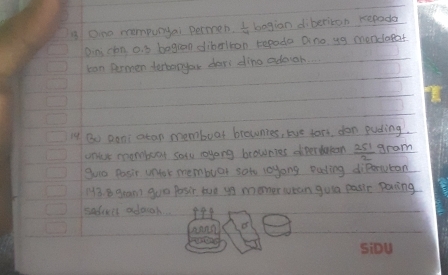 13 Dino mempunyai Permen ½ bagian diberikan kepada
Dini dan 0,3 bagian diberikan kepada Dina yg mendapat
kan Permen terbanyak dari dino adalah
14 Bu Deni akan membuat brownies, kue tart, dan puding.
untuk membuat satu loyang brownies diperlukan 251/2 gram
gula Pasir untuk membuat satu loyang Puding diperlukan
gram gula Pasir kue yg memerlukan gula pasir paling
sedikit adalah
SiDU